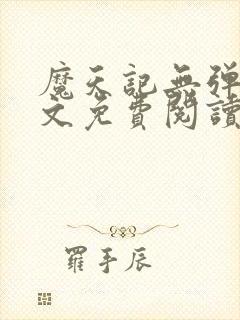 魔天記無彈
文免費閱讀
羅手辰